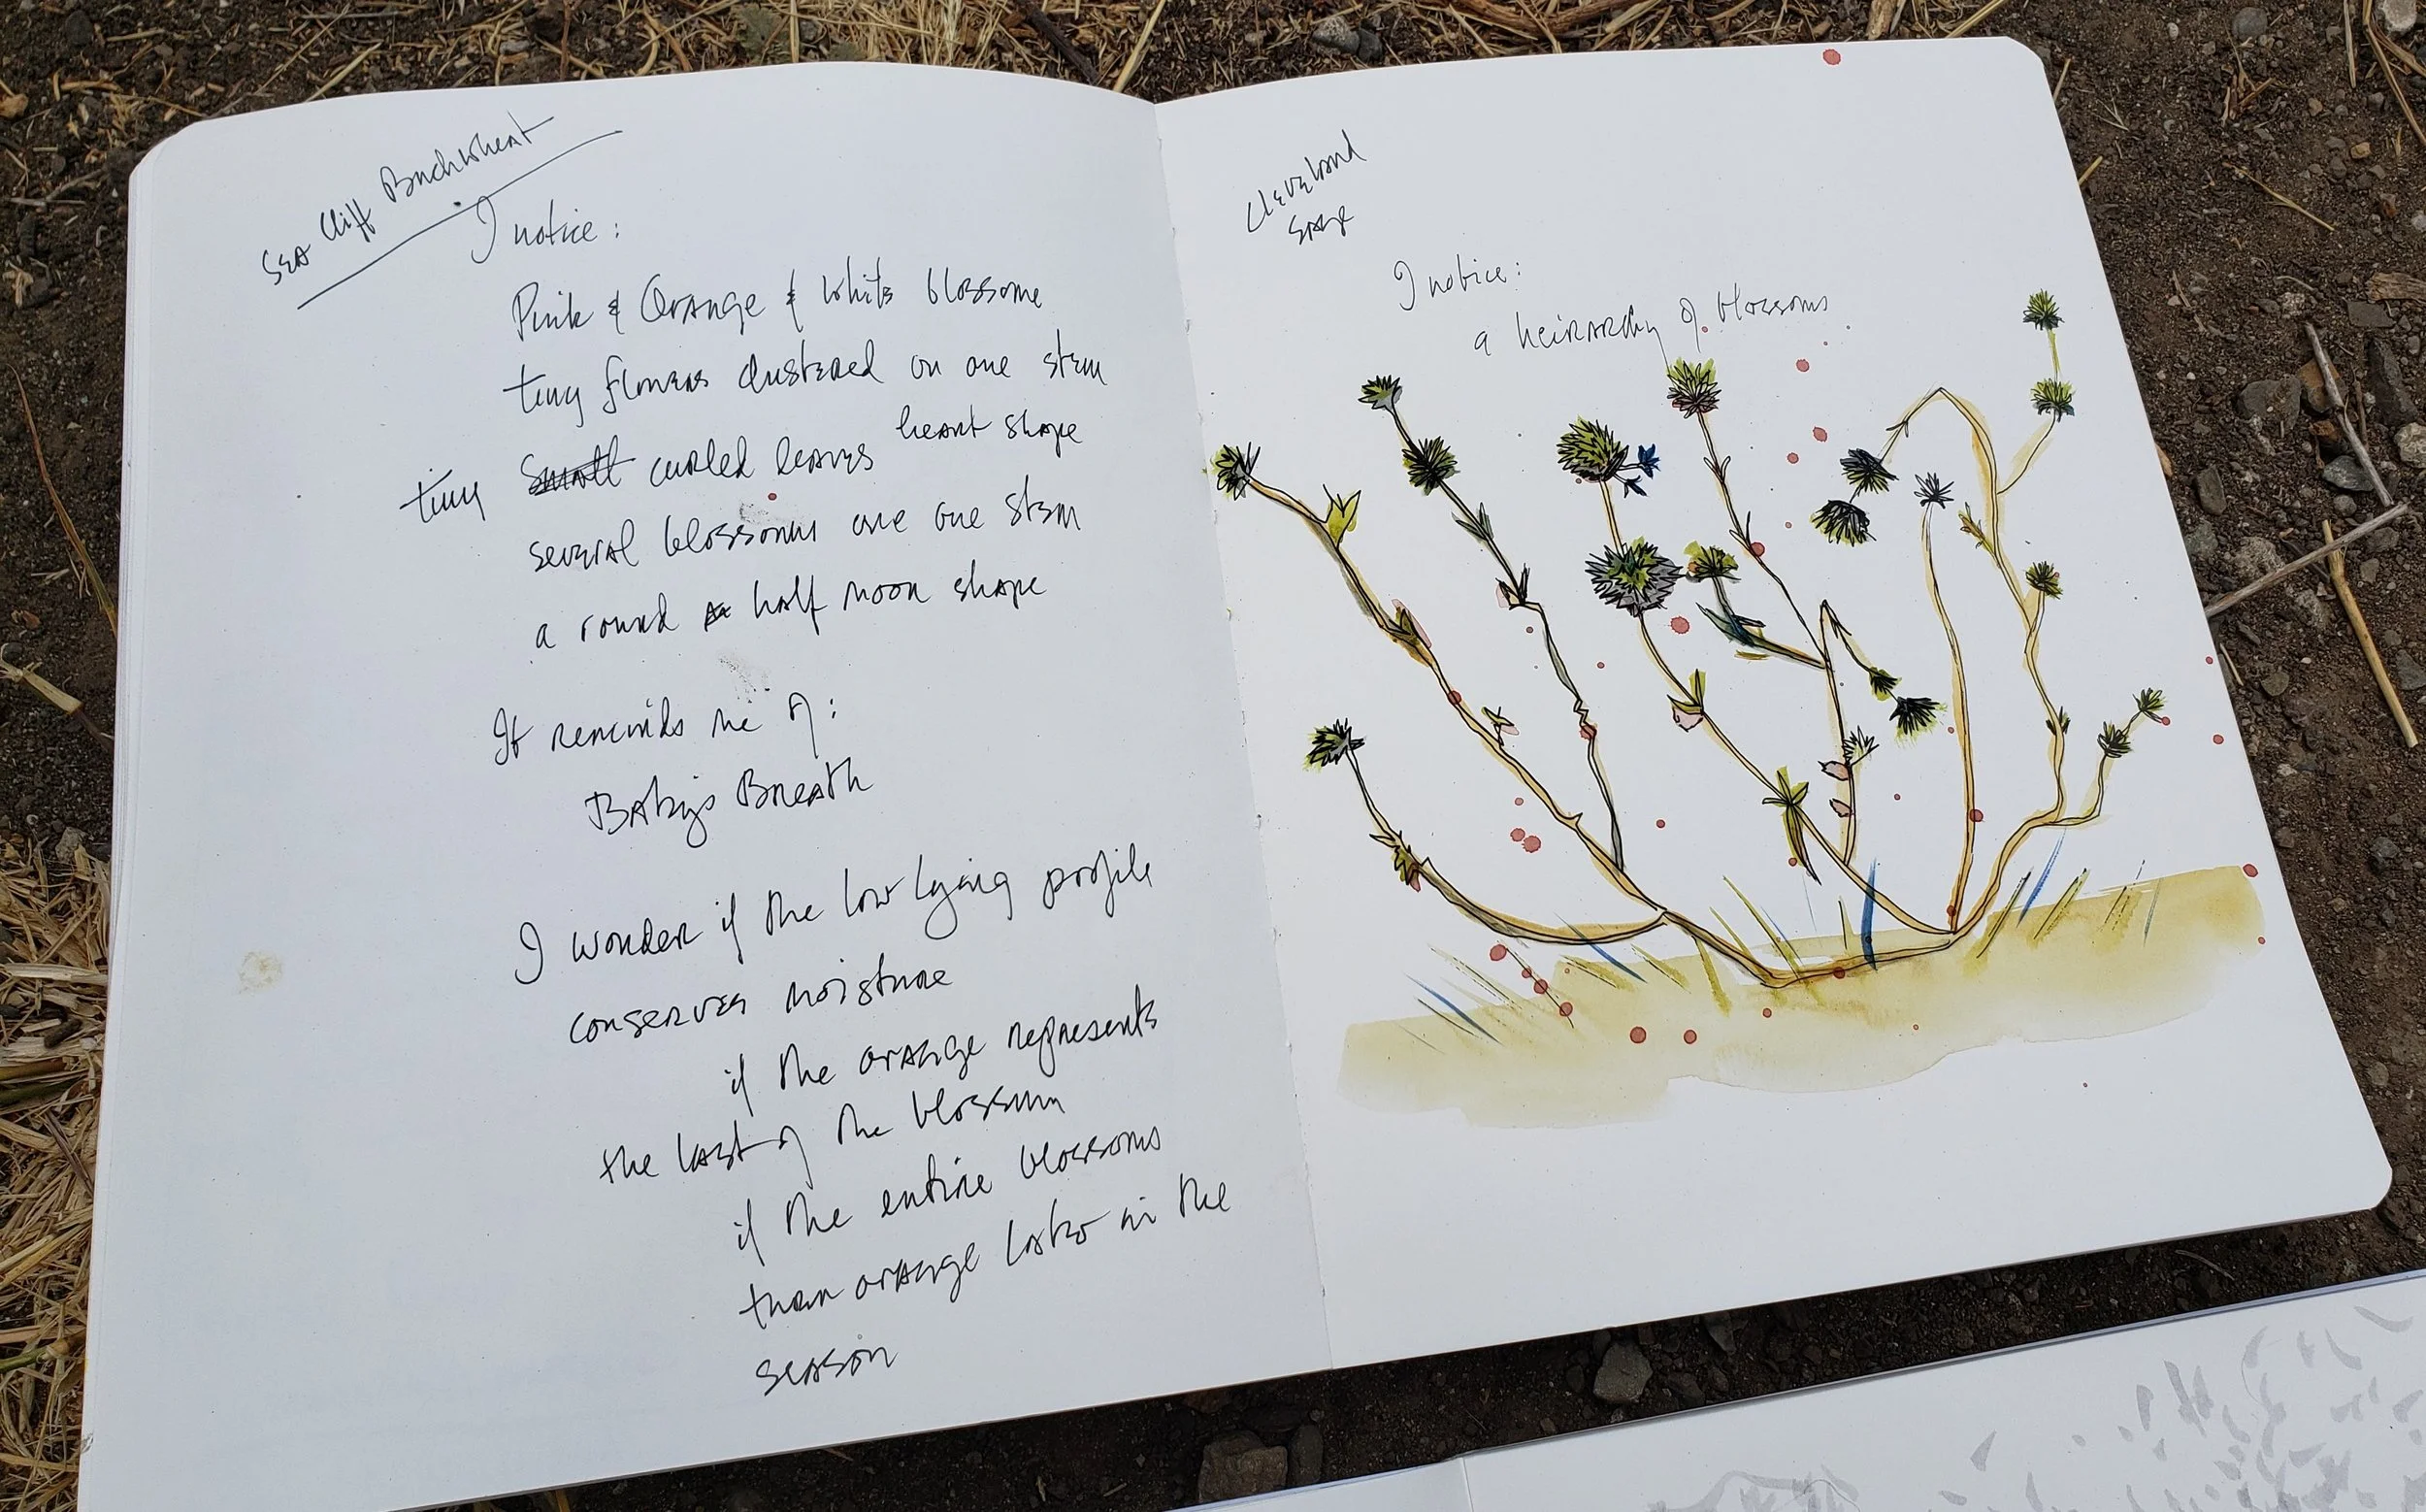 Sea Cliff Buckwheat
I notice:
Pink & Orange & white blossome
tiny flowers clustered on one stem
tiny small curled leaves heart shape
several blossoms one one stem
a round half moon shape
It reminds me of:
Baby's Breath
I wonder if the low lying profile
conserves moisture
if the orange represents
the last of the blossum
if the entire blossoms
turn orange later in the
season
Cleveland
Sage
I notice:
a heirarchy of blossoms